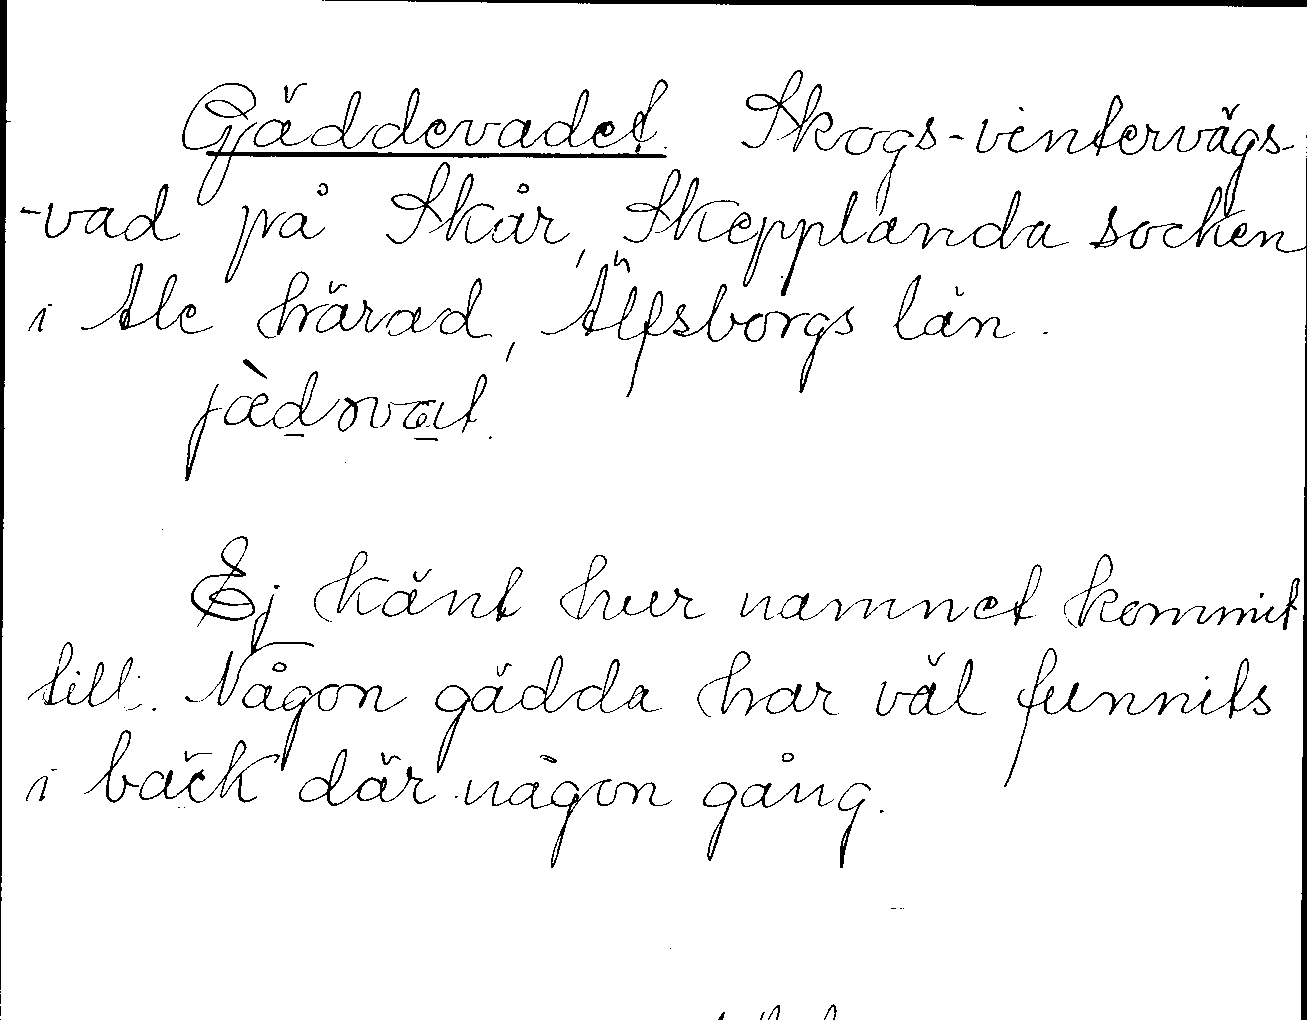 Gjäddevadet. Skogs-vintervägs-
-vad på Skår, Skepplanda socken
i Ale härad, Älfsborgs län.
jàdɔvat.
Ej känt hur namnet kommit
till. Någon gädda har väl funnits
i bäck där någon gång.